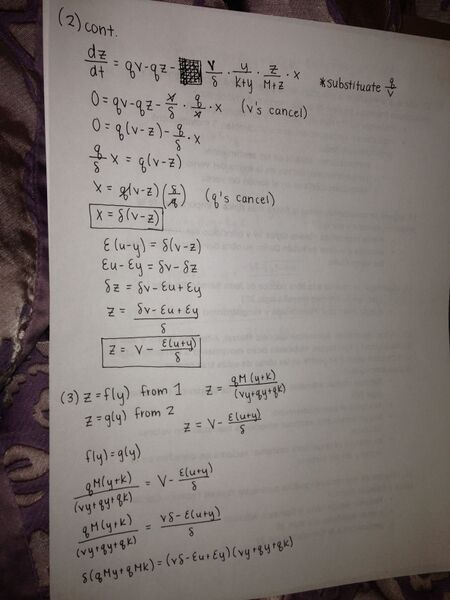 (2) cont.
dz/dt = qv-qz- V/δ · y/(k+y) · z/(M+z) · x *substituate q/v
0 = qv-qz- v/δ · q/v · x (v's cancel)
0 = q(v-z)- q/δ · x
q/δ x = q(v-z)
x = q(v-z)(δ/q) (q's cancel)
x = δ(v-z)
ε(u-y) = δ(v-z)
εu-εy = δv-δz
δz = δv-εu+εy
z = (δv-εu+εy)/δ
z = v - ε(u+y)/δ
(3) z=f(y) from 1 z = qM(y+k)/(vy+qy+qk)
z=g(y) from 2 z = V- ε(u+y)/δ
f(y)=g(y)
qM(y+k)/(vy+qy+qk) = V- ε(u+y)/δ
qM(y+k)/(vy+qy+qk) = (vδ-ε(u+y))/δ
δ(qMy+qMk) = (vδ-εu+εy)(vy+qy+qk)